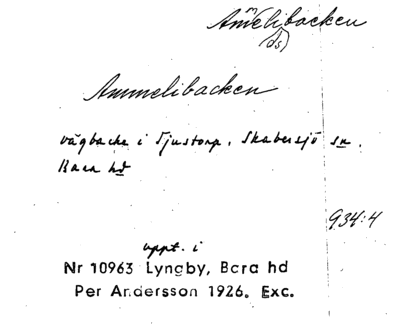 Ammelibacken
ds)
Ammelibacken
vägbacke i Tjustorp, Skabersjö sn.
Bara hd
934:4
uppt. i
Nr 10963 Lyngby, Bara hd
Per Andersson 1926. Exc.